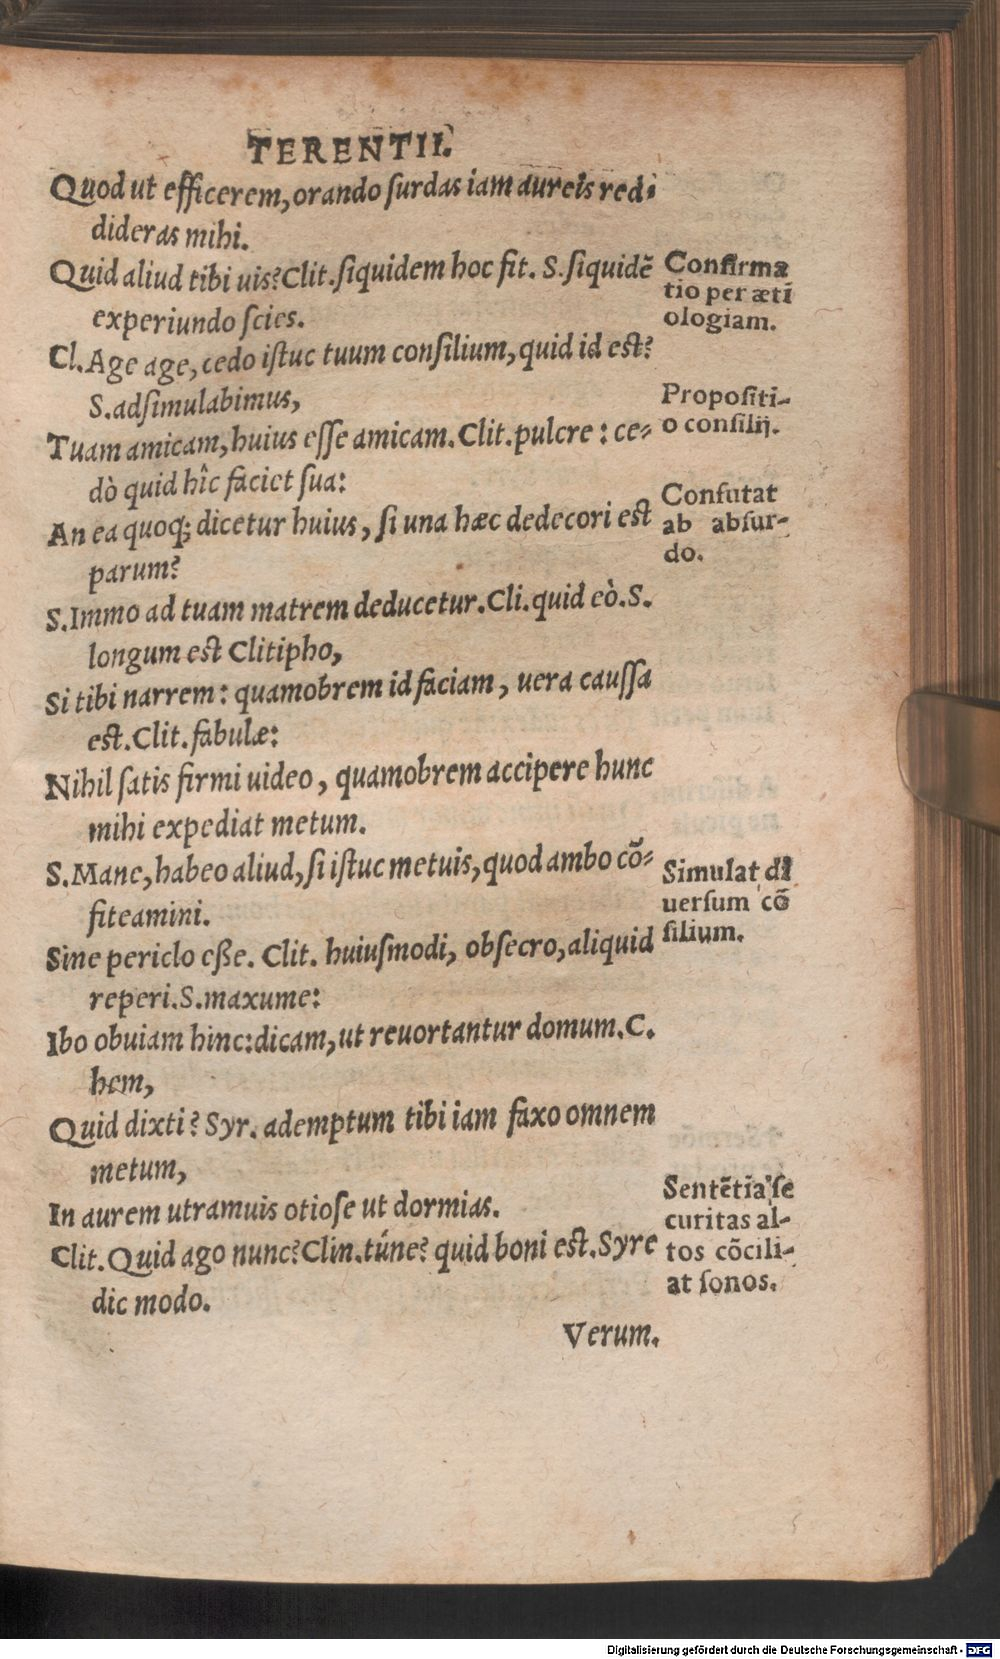 TERENTII.
Quod ut efficerem, orando surdas iam aureis redi
dideras mihi.
Quid aliud tibi uis? Clit. siquidem hoc fit. S. siquidẽ
experiundo scies.
Confirma
tio per æti
ologiam.
Cl. Age age, cedo istuc tuum consilium, quid id est?
S. adsimulabimus,
Tuam amicam, huius esse amicam. Clit. pulcre: ce-
dò quid hîc faciet sua:
Propositi-
o consilij.
An ea quoq; dicetur huius, si una hæc dedecori est
parum?
Confutat
ab absur-
do.
S. Immo ad tuam matrem deducetur. Cli. quid eò. S.
longum est Clitipho,
Si tibi narrem: quamobrem id faciam, uera caussa
est. Clit. fabulæ:
Nihil satis firmi uideo, quamobrem accipere hunc
mihi expediat metum.
S. Mane, habeo aliud, si istuc metuis, quod ambo cõ-
fiteamini.
Sine periclo eße. Clit. huiusmodi, obsecro, aliquid
reperi. S. maxume:
Simulat di
uersum cõ
silium.
Ibo obuiam hinc: dicam, ut reuortantur domum. C.
hem,
Quid dixti? Syr. ademptum tibi iam faxo omnem
metum,
In aurem utramuis otiose ut dormias.
Clit. Quid ago nunc? Clin. túne? quid boni est. Syre
dic modo.
Sentẽtia se
curitas al-
tos cõcili-
at sonos.
Verum.
Digitalisierung gefördert durch die Deutsche Forschungsgemeinschaft - DFG